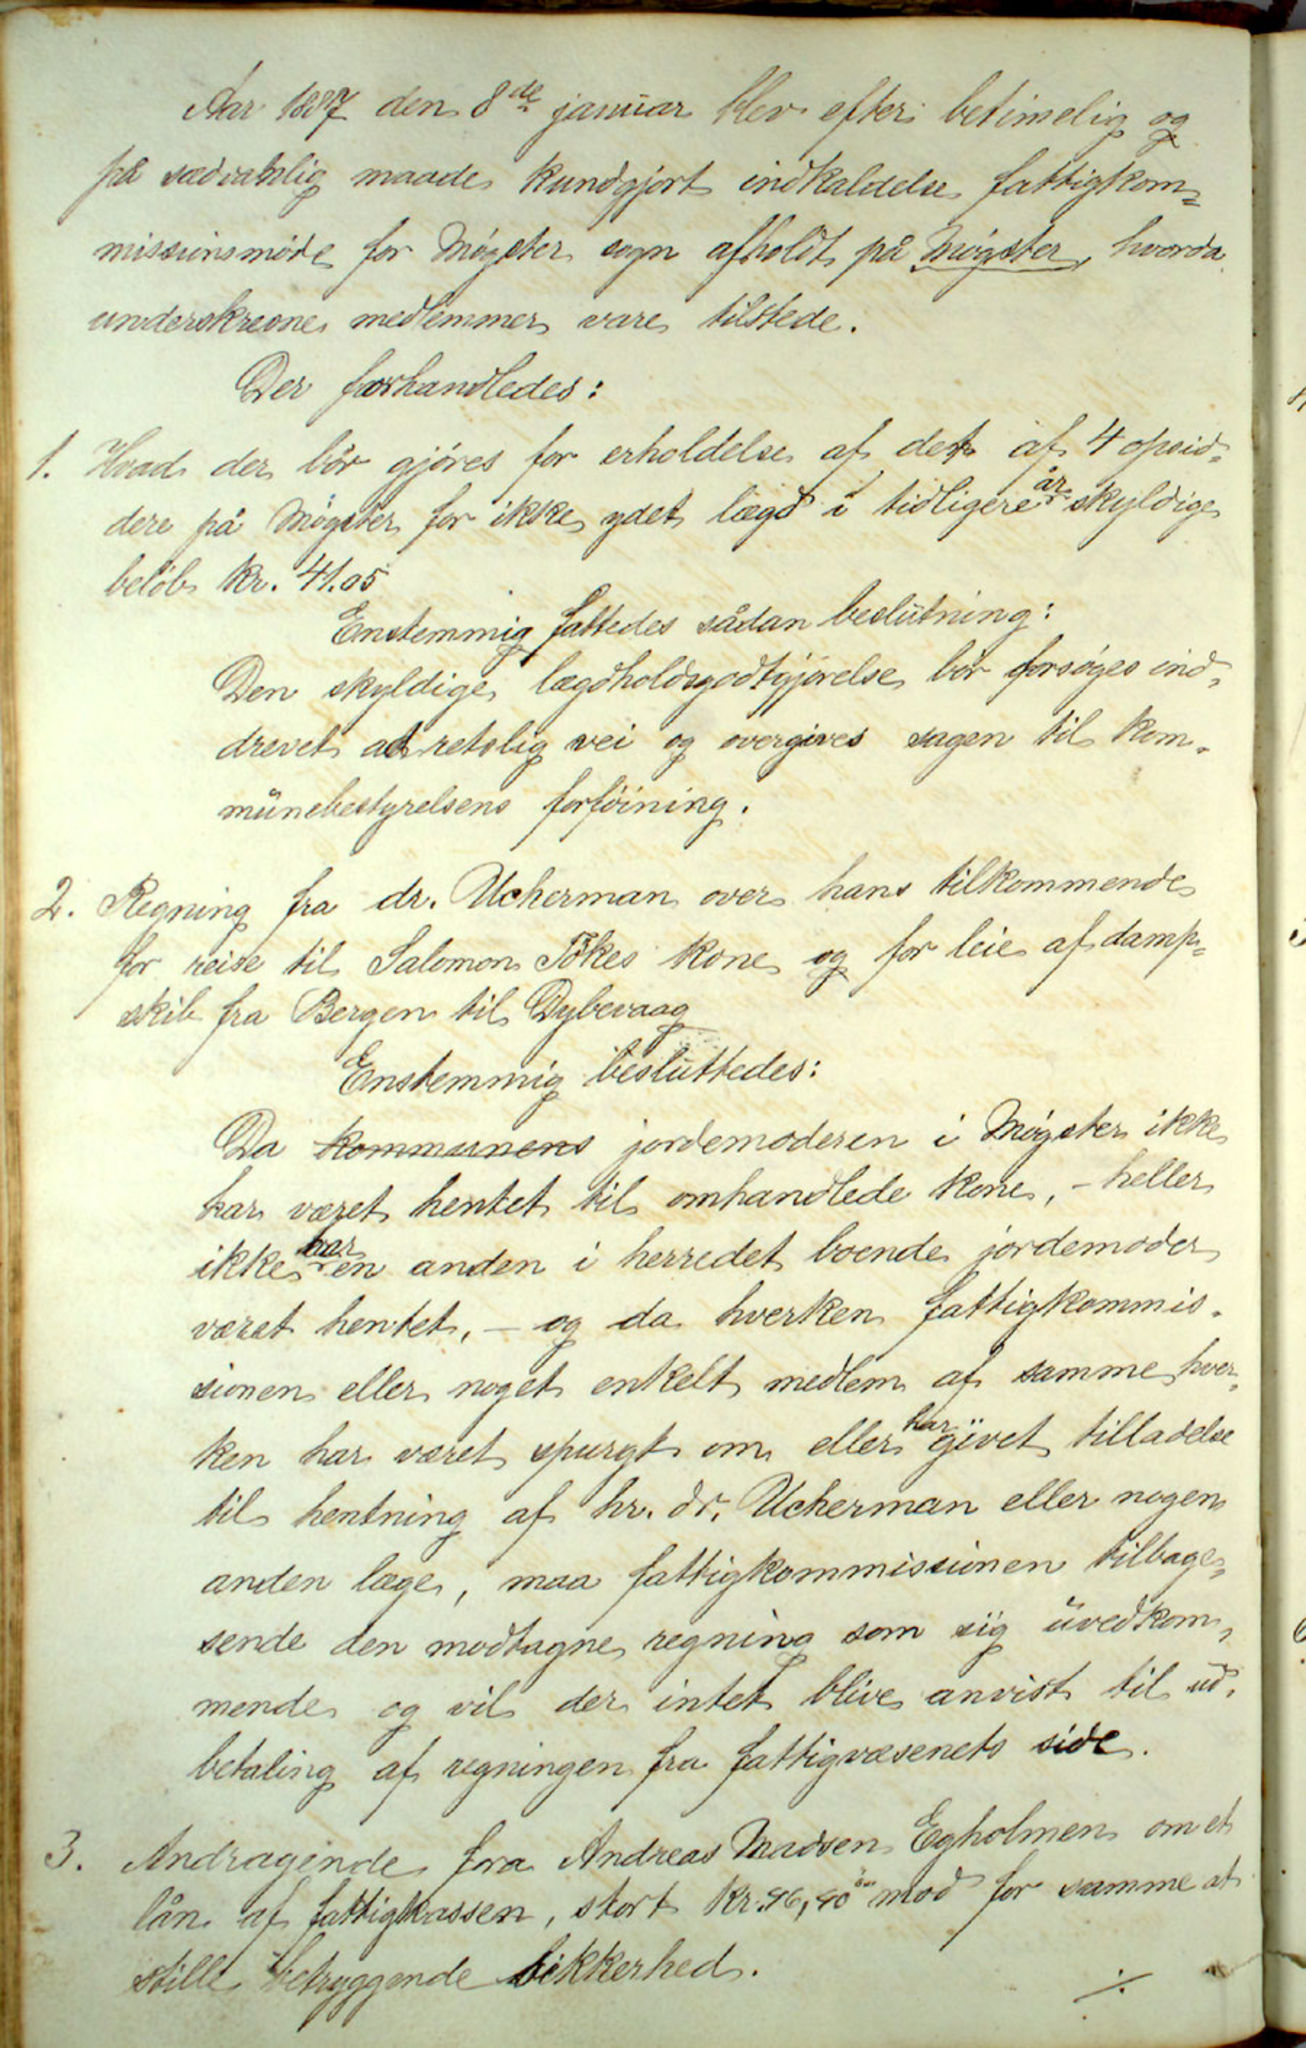 Aar 1887 den 8de januar blev efter betimelig og
på sædvanlig maade kundgjort indkaldelse fattigkom-
missionsmöde for Møgster sogn afholdt på Møgster, hvorda
underskrevne medlemmer vare tilstede.
Der forhandledes:
1. Hvad der bör gjöres for erholdelse af det af 4 opsid-
dere på Møgster for ikke ydet lægd i tidligere år skyldige
belöb kr. 41.05
Enstemmig fattedes sådan beslutning:
Den skyldige lægdholdsgodtgjörelse bör forsöges ind-
drevet ad retslig vei og overgives sagen til kom-
munebestyrelsens forföining.
2. Regning fra dr. Ucherman over hans tilkommende
for reise til Salomon Tökes kone og for leie af damp-
skib fra Bergen til Dybevaag
Enstemmig besluttedes:
Da kommunens jordemoderen i Møgster ikke
har været hentet til omhandlede kone, - heller
ikke har en anden i herredet boende jordemoder
været hentet, - og da hverken fattigkommis-
sionen eller noget enkelt medlem af samme hver-
ken har været spurgt om eller har givet tilladelse
til hentning af hr. dr. Ucherman eller nogen
anden læge, maa fattigkommissionen tilbage-
sende den modtagne regning som sig uvedkom-
mende og vil der intet blive anvist til ud-
betaling af regningen fra fattigvæsenets side.
3. Andragende fra Andreas Madsen Egholmen om et
lån af fattigkassen, stort kr. 96,90 mod for samme at
stille betryggende sikkerhed.